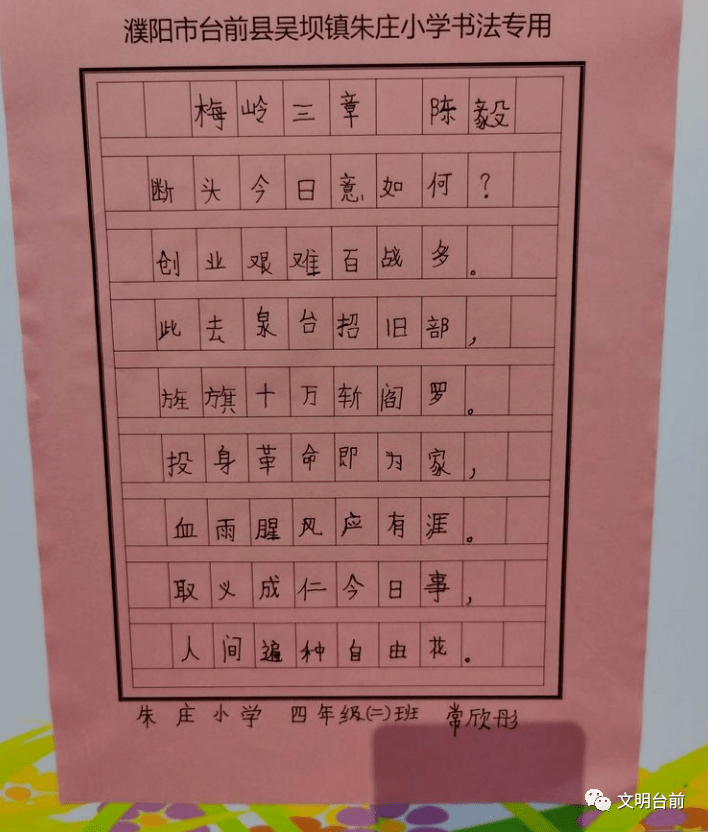 濮阳市台前县吴坝镇朱庄小学书法专用
梅岭三章 陈毅
断头今日意如何?
创业艰难百战多。
此去泉台招旧部,
旌旗十万斩阎罗。
投身革命即为家,
血雨腥风应有涯。
取义成仁今日事,
人间遍种自由花。
朱庄小学 四年级(二)班 常欣彤
文明台前